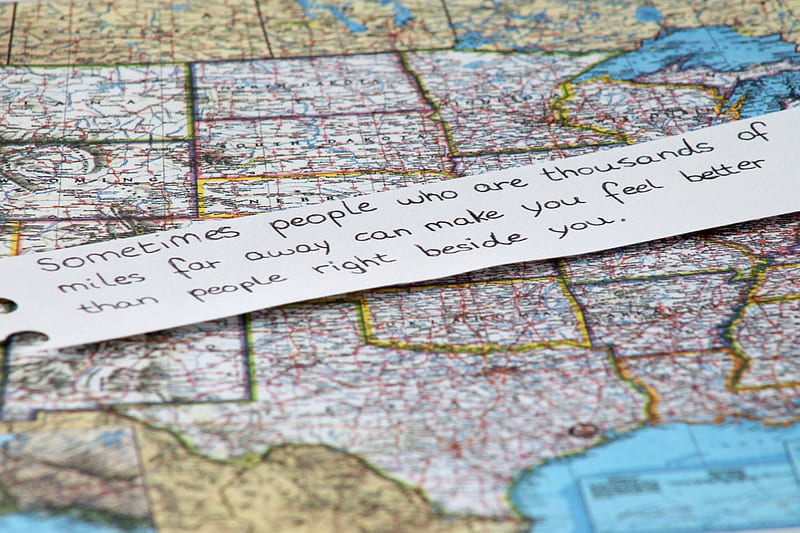 Sometimes people who are thousands of
miles far away can make you feel better
than people right beside you.